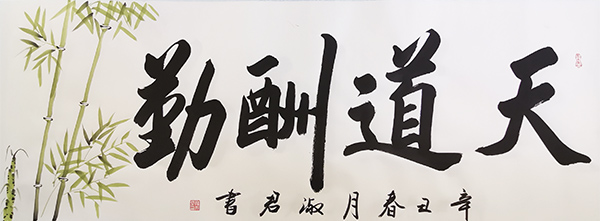 天道酬勤
辛丑春月淑君書